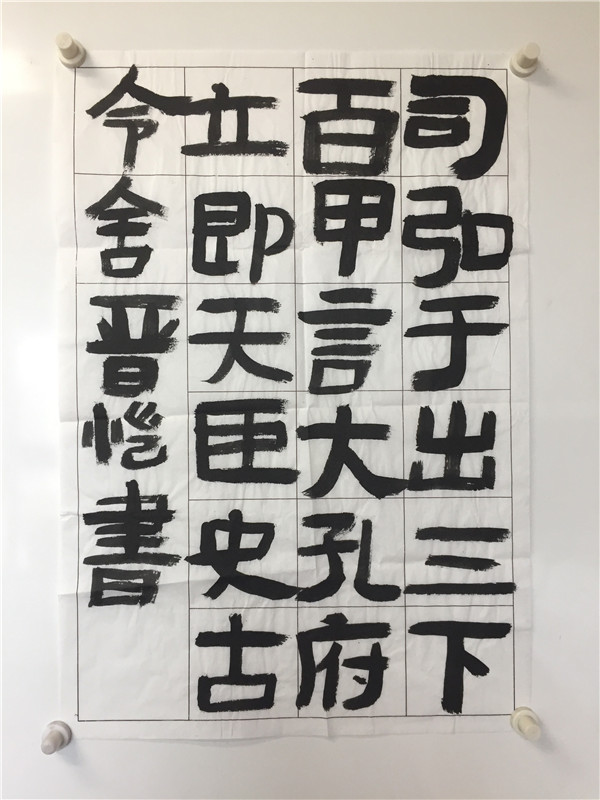 司弘于出三下
百甲言大孔府
立即天臣史古
令舍晋恺書